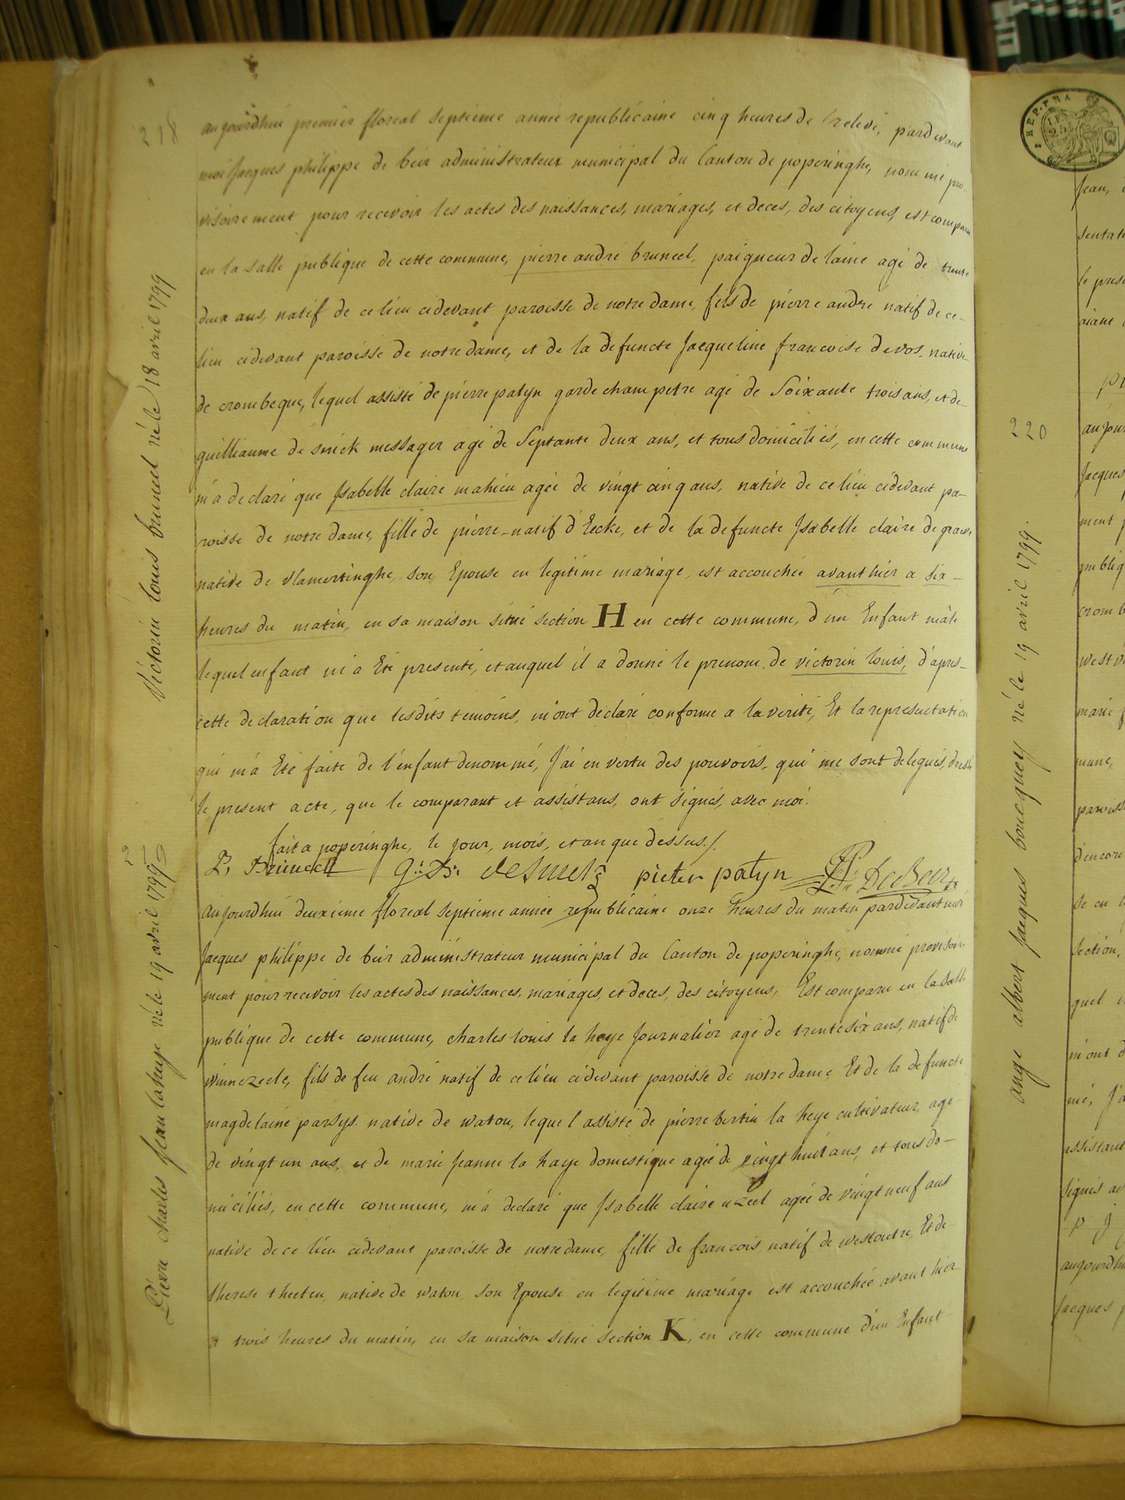 218
Victorin louis bruneel né le 18 avril 1799
aujourdhui premier floreal septieme année republicaine cinq heures de relevé, pardevant
moi Jacques philippe de beir administrateur municipal du Canton de poperinghe, nommé pro
visoirement pour recevoir les actes des naissances, mariages, et deces, des citoyens, est comparu
en la salle publique de cette commune, pierre andré bruneel, paigneur de laine agé de trente
deux ans, natif de ce lieu cidevant paroisse de notre dame, fils de pierre andré natif de ce-
lieu cidevant paroisse de notre dame, et de la defuncte Jacqueline francoise de vos, native
de crombeque, lequel assisté de pierre patyn garde champetre agé de Soixante trois ans, et de
guilliaume de smick messager agé de Septante deux ans, et tous domiciliés, en cette commune
m'a declaré que Isabelle claire mahieu agée de vingt cinq ans, native de ce lieu cidevant pa-
roisse de notre dame, fille de pierre natif d'Eecke, et de la defuncte Isabelle claire de
native de vlamertinghe, son Epouse en legitime mariage, est accouchée avant hier a six-
heures du matin, en sa maison situé section H en cette commune, d'un Enfant mâle
lequel enfant m'a Eté presenté, et auquel il a donné le prenom de victorin louis, d'apres-
cette declaration que lesdits temoins, m'ont declaré conforme a la verité, Et la representation
qui m'a Eté faite de l'enfant denommé, J'ai en vertu des pouvoirs, qui me sont delegués, dressé
le present acte, que le comparant et assistans, ont signés, avec moi.
fait a poperinghe, le jour, mois, et an que dessus /.
P. Bruneel G: D: desmets pieter patyn DeBeir
219
Pierre charles Jean lahaye né le 19 avril 1799
aujourdhui deuxieme floreal septieme année republicaine onze heures du matin pardevant moi
Jacques philippe de beir administrateur municipal du Canton de poperinghe, nommé provisoire
ment pour recevoir les actes des naissances, mariages, et deces, des citoyens, Est comparu en la salle
publique de cette commune, charles louis la heye Journalier agé de trente six ans, natif de
winnezeele, fils de feu andré natif de ce lieu cidevant paroisse de notre dame Et de la defuncte
magdelaine parsys native de watou, lequel assisté de pierre bertin la heye cultivateur, agé
de vingt un ans, et de marie Jeanne la haye domestique agée de vingt huit ans, et tous do-
miciliés, en cette commune, m'a declaré que Isabelle claire uzeel agée de vingt neuf ans
native de ce lieu cidevant paroisse de notre dame, fille de francois natif de westoutre, Et de
therese theeten native de watou son Epouse en legitime mariage est accouchée avant hier
a trois heures du matin, en sa maison situé section K, en cette commune d'un Enfant
220
ange albert Jacques boucquey né le 19 avril 1799.
REP. FRA
Jean,
sentati
le prese
aiant
aujour
Jacques
ment p
publiq
cromb
westv
marié
mune,
paroiss
d'encore
de ce l
section,
quel
m'ont d
mé, J'a
assistant
signés av
P J
aujourdhu
Jacques p